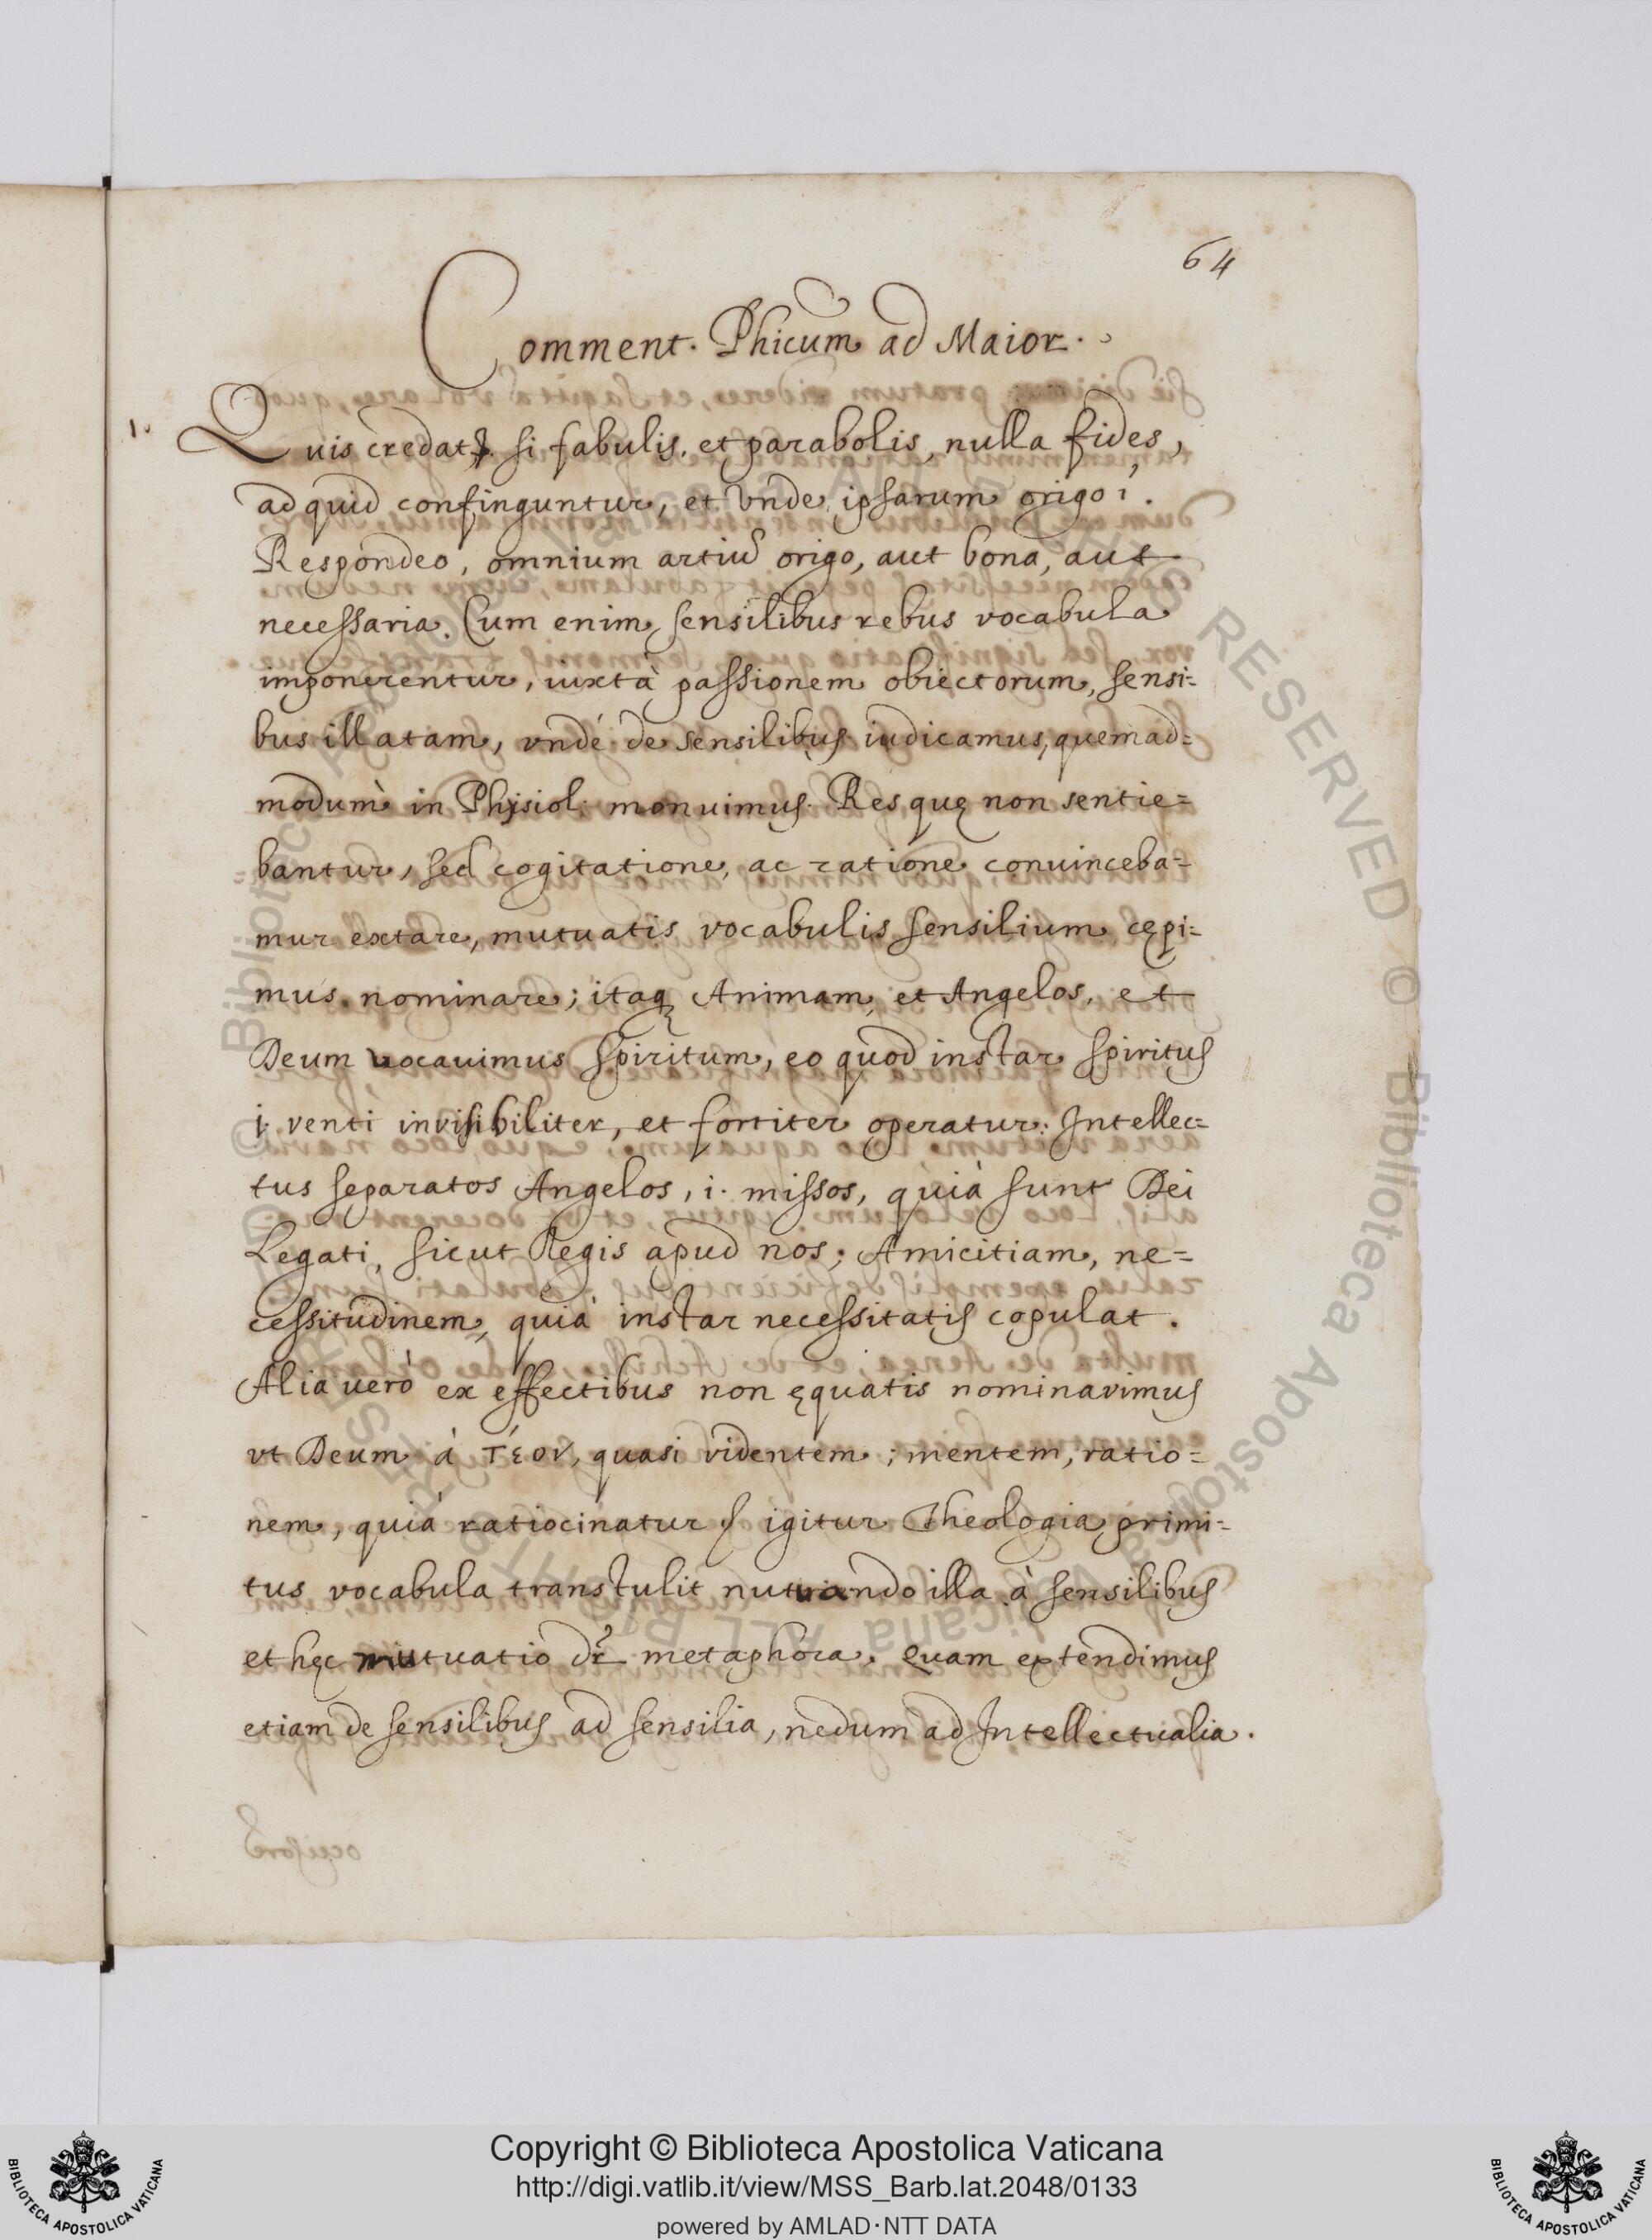 64
Comment. Phicum ad Maior.
1. Quis credat. si fabulis, et parabolis, nulla fides,
ad quid confinguntur, et vnde ipsarum origo?.
Respondeo, omnium artiũ origo, aut bona, aut
necessaria. Cum enim sensilibus rebus vocabula
imponerentur, iuxtà passionem obiectorum, sensi=
bus illatam, vndé de sensilibus iudicamus, quemad=
modum in Physiol. monuimus. Res quę non sentie=
bantur, sed cogitatione, ac ratione conuinceba=
mur extare, mutuatis vocabulis sensilium cępi=
mus nominare; itaq; Animam, et Angelos, et
Deum vocauimus Spiritum, eo quod instar spiritus
i. venti invisibiliter, et fortiter operatur: Intellec=
tus separatos Angelos, i. missos, quià sunt Dei
Legati, sicut Regis apud nos; Amicitiam, ne=
cessitudinem, quià instar necessitatis copulat.
Alia uerò ex effectibus non ęquatis nominavimus
vt Deum à τέον, quasi videntem; mentem, ratio=
nem, quià ratiocinatur igitur Theologia primi=
tus vocabula transtulit nutuando illa à sensilibus
et hęc mutuatio dr̃ metaphora. Quam extendimus
etiam de sensilibus ad sensilia, nedum ad Intellectualia.
Copyright © Biblioteca Apostolica Vaticana
http://digi.vatlib.it/view/MSS_Barb.lat.2048/0133
powered by AMLAD·NTT DATA
BIBLIOTECA APOSTOLICA VATICANA
BIBLIOTECA APOSTOLICA VATICANA